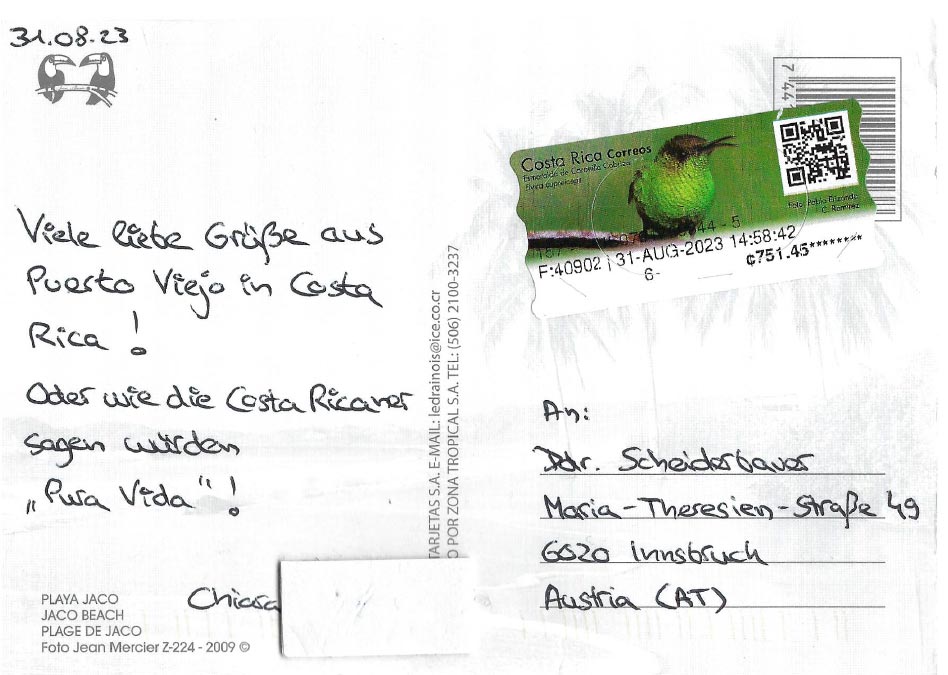 31.08.23
Viele liebe Grüße aus
Puerto Viejo in Costa
Rica !
Oder wie die Costa Ricaner
sagen würden
„Pura Vida“!
Chiara
PLAYA JACO
JACO BEACH
PLAGE DE JACO
Foto Jean Mercier Z-224 - 2009 ©
TARJETAS S.A. E-MAIL: ledrainois@ice.co.cr
O POR ZONA TROPICAL S.A. TEL: (506) 2100-3237
Costa Rica Correos
Esmeralda de Coronilla Cobriza
Elvira cupreiceps
Foto: Pablo Elizondo
C. Ramírez
44 - 5
F:40902 | 31-AUG-2023 14:58:42
6-
₡751.45********
An:
Ddr. Scheiderbauer
Maria-Theresien-Straße 49
6020 Innsbruck
Austria (AT)